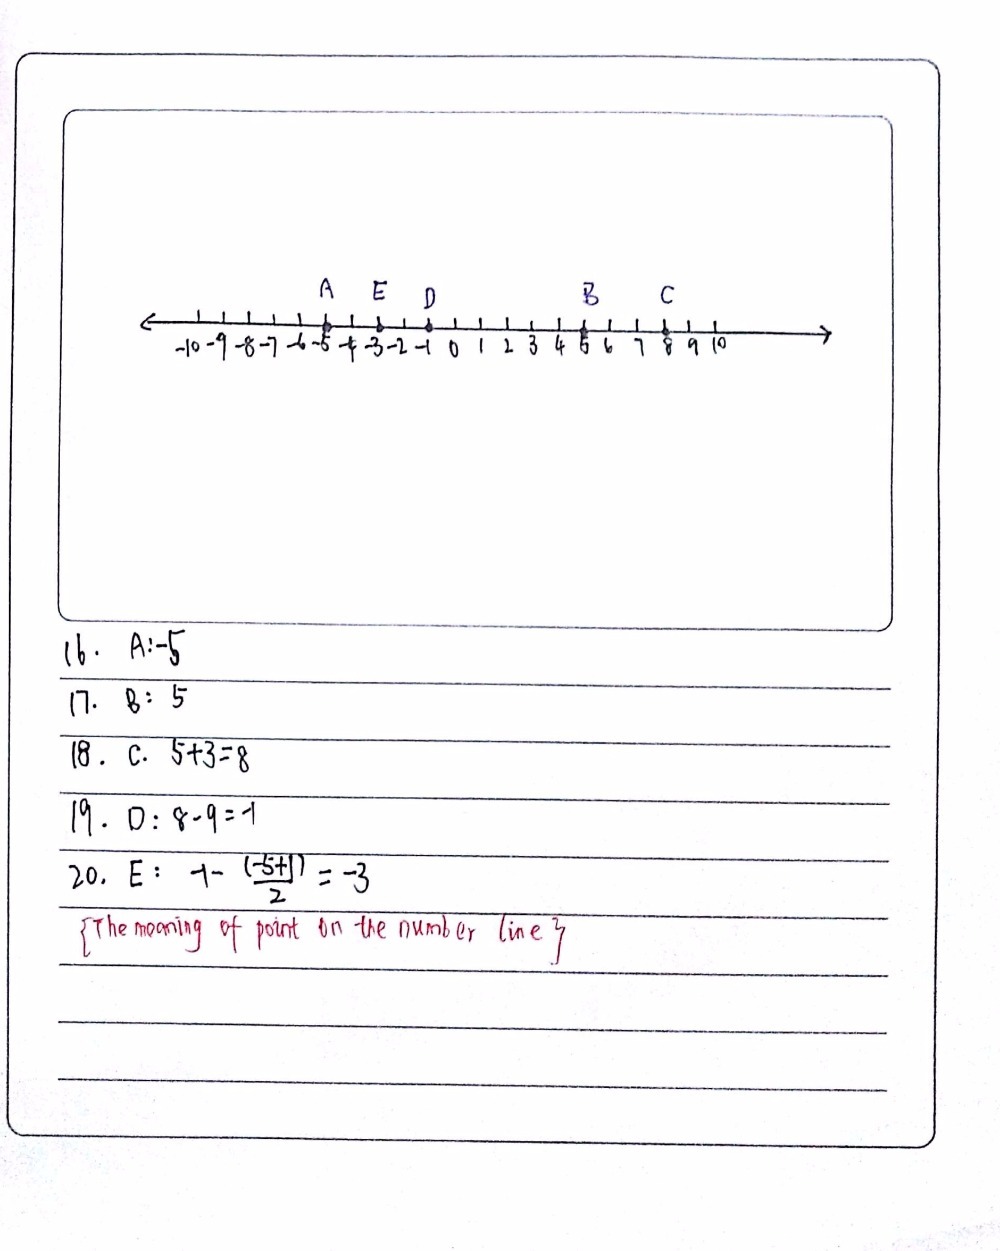 A E D B C
-10 -9 -8 -7 -6 -5 -4 -3 -2 -1 0 1 2 3 4 5 6 7 8 9 10
16. A: -5
17. B: 5
18. C. 5+3=8
19. D: 8-9=-1
20. E: -1- (-5+1)/2 = -3
{The meaning of point on the number line}